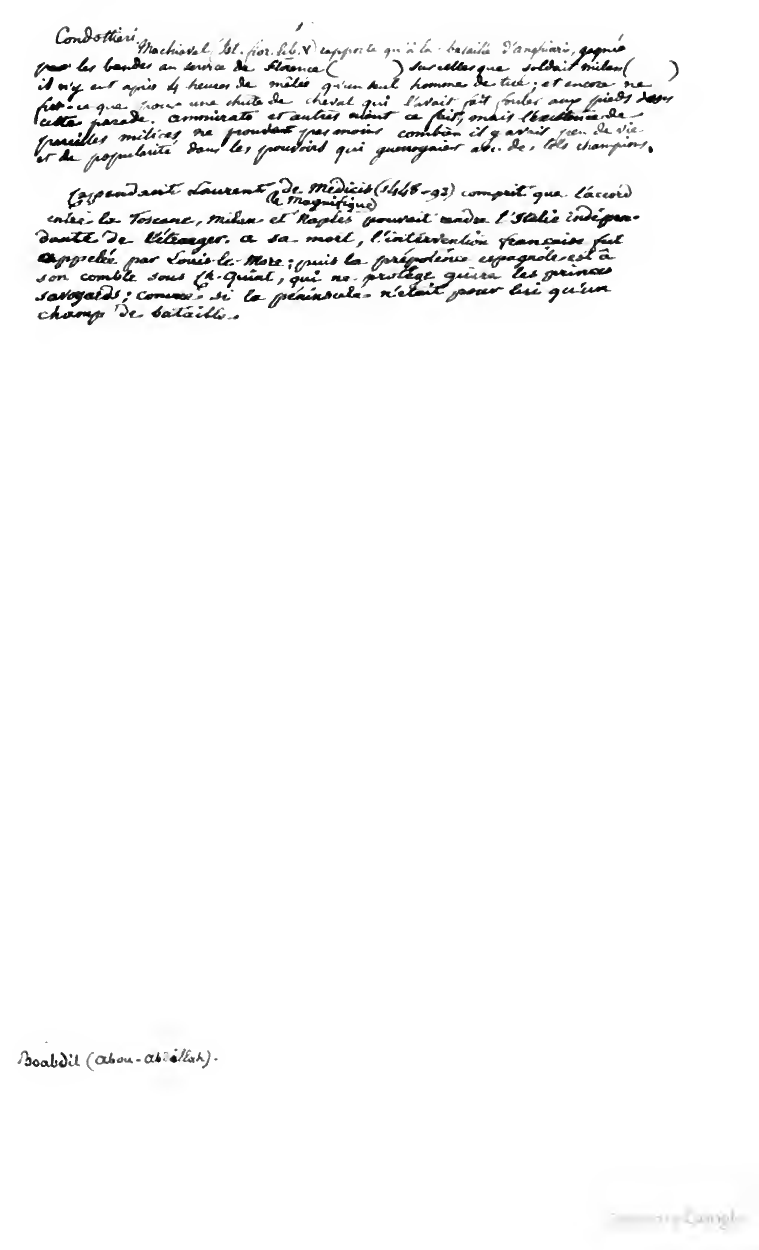 Condottieri
Machiavel (Ist. fior. lib. V) rapporte qu'à la bataille d'anghiari, gagnée
par les bandes au service de Florence ( ) sur celles que soldait milan ( )
il n'y eut après 4 heures de mêlée qu'un seul homme de tué; et encore ne
fut-ce que pour une chute de cheval qui l'avait fait fouler aux pieds dans
cette parade. ammirato et autres nient ce fait, mais l'existence de
pareilles milices ne prouvent pas moins combien il y avait peu de vie
et de popularité dans les pouvoirs qui guerroyaient avec de tels champions.
Cependant Laurent de Médicis (1448-92) comprit que l'accord
(le Magnifique)
entre la Toscane, milan et Naples pouvait rendre l'Italie indépen-
dante de l'étranger. a sa mort, l'intervention française fut
appelée par Louis-le-More; puis la prépotence espagnole est à
son comble sous Ch-Quint, qui ne protège guère les princes
savoyards; comme si la péninsule n'était pour lui qu'un
champ de bataille.
Boabdil (abou-abdillah).